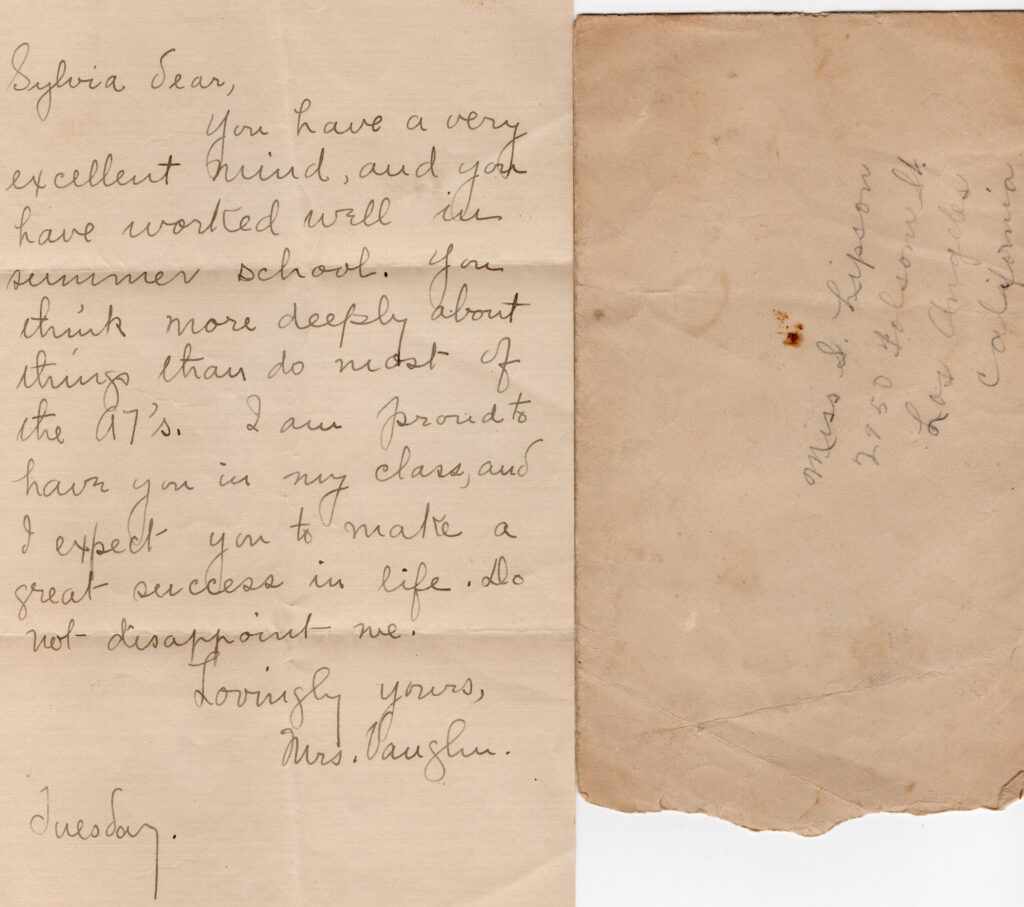 Sylvia dear,
You have a very
excellent mind, and you
have worked well in
summer school. You
think more deeply about
things than do most of
the A7's. I am proud to
have you in my class, and
I expect you to make a
great success in life. Do
not disappoint me.
Lovingly yours,
Mrs. Vaughn.
Tuesday.
Miss S. Lipson
2950 Folsom St.
Los Angeles
California